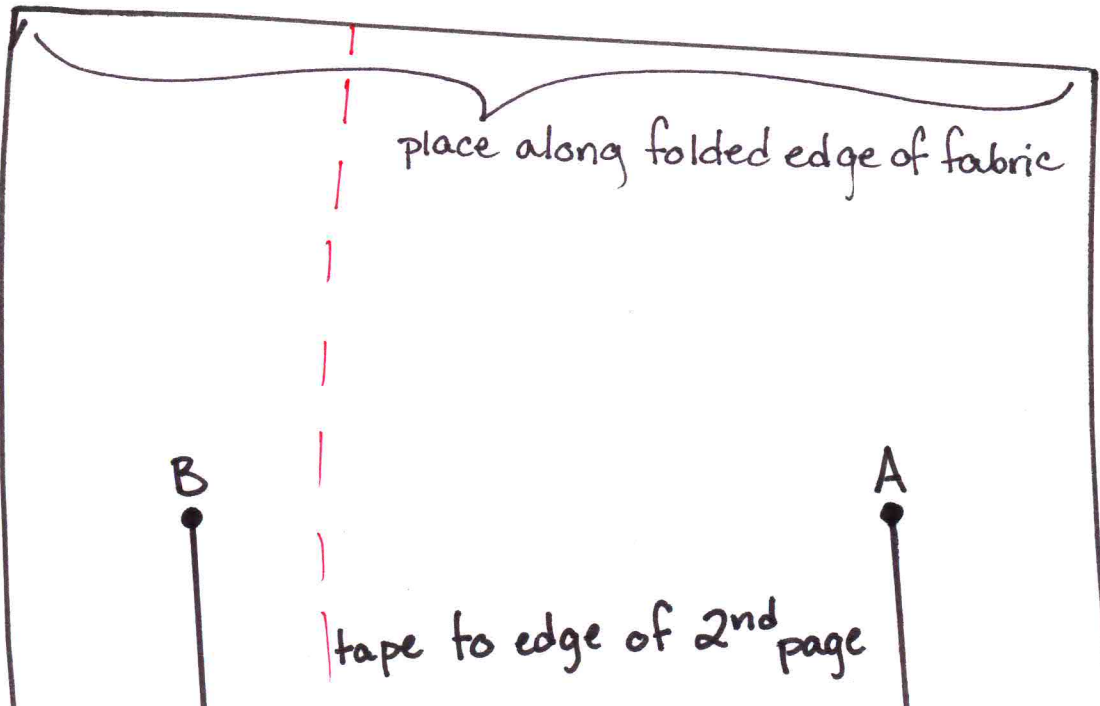 place along folded edge of fabric
B
A
tape to edge of 2nd page